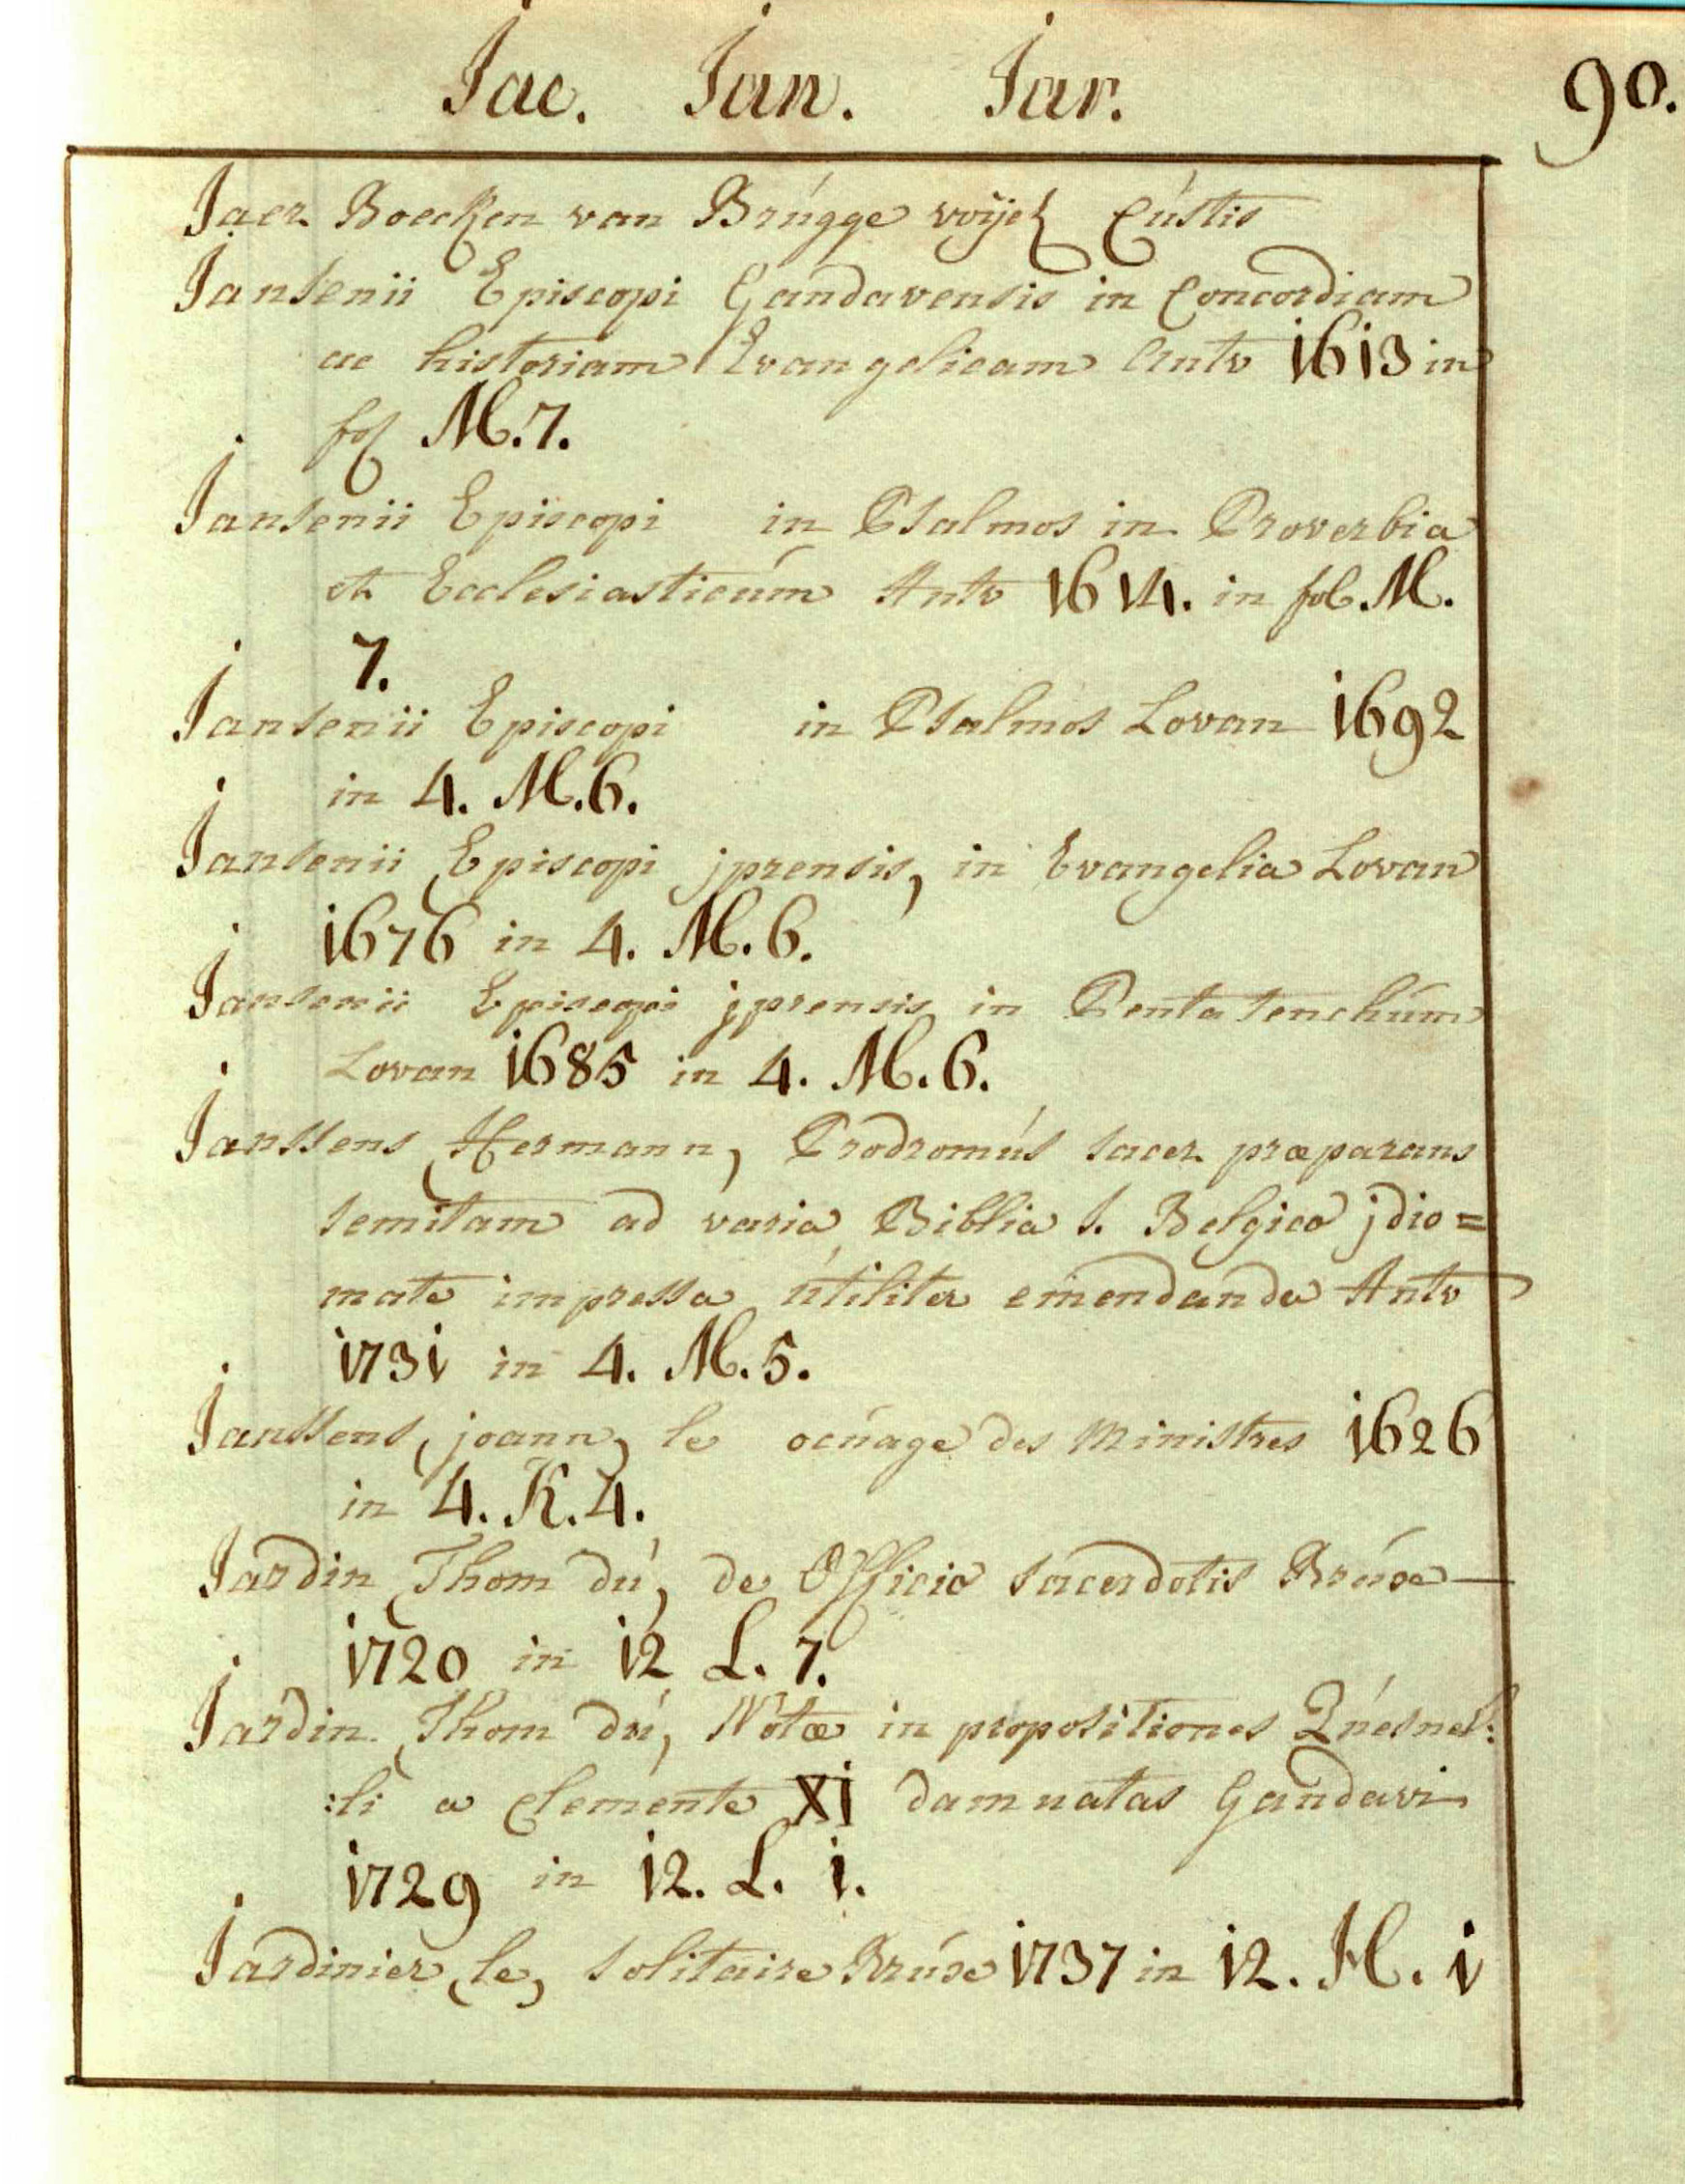 Jac. Jan. Jar.
90.
Jaer Boecken van Brúgge Cústis
Jansenii Episcopi Gandavensis in Concordiam
ac historiam Evangelicam Antv 1613 in
fol M.7.
Jansenii Episcopi in Psalmos in Proverbia
et Ecclesiasticúm Antv 1614. in fol. M.
7.
Jansenii Episcopi in Psalmos Lovan 1692
in 4. M.6.
Jansenii Episcopi jprensis, in Evangelia Lovan
1676 in 4. M.6.
Jansenii Episcopi jprensis in Pentatenchúm
Lovan 1685 in 4. M.6.
Janssens, Hermann, Prodromús sacer præparans
semitam ad varia Biblia s. Belgico jdio=
mate impressa útiliter emendanda Antv
1731 in 4. M.5.
Janssens, joann, le des Ministres 1626
in 4. K.4.
Jardin, Thom dú, de Officio sacerdotis Brúx
1720 in 12 L.7.
Jardin, Thom dú, Notæ in propositiones Qúesnel:
:li a Clemente XI damnatas Gandavi
1729 in 12. L. 1.
Jardinier, le, solitaire Brúx 1737 in 12. H. 1